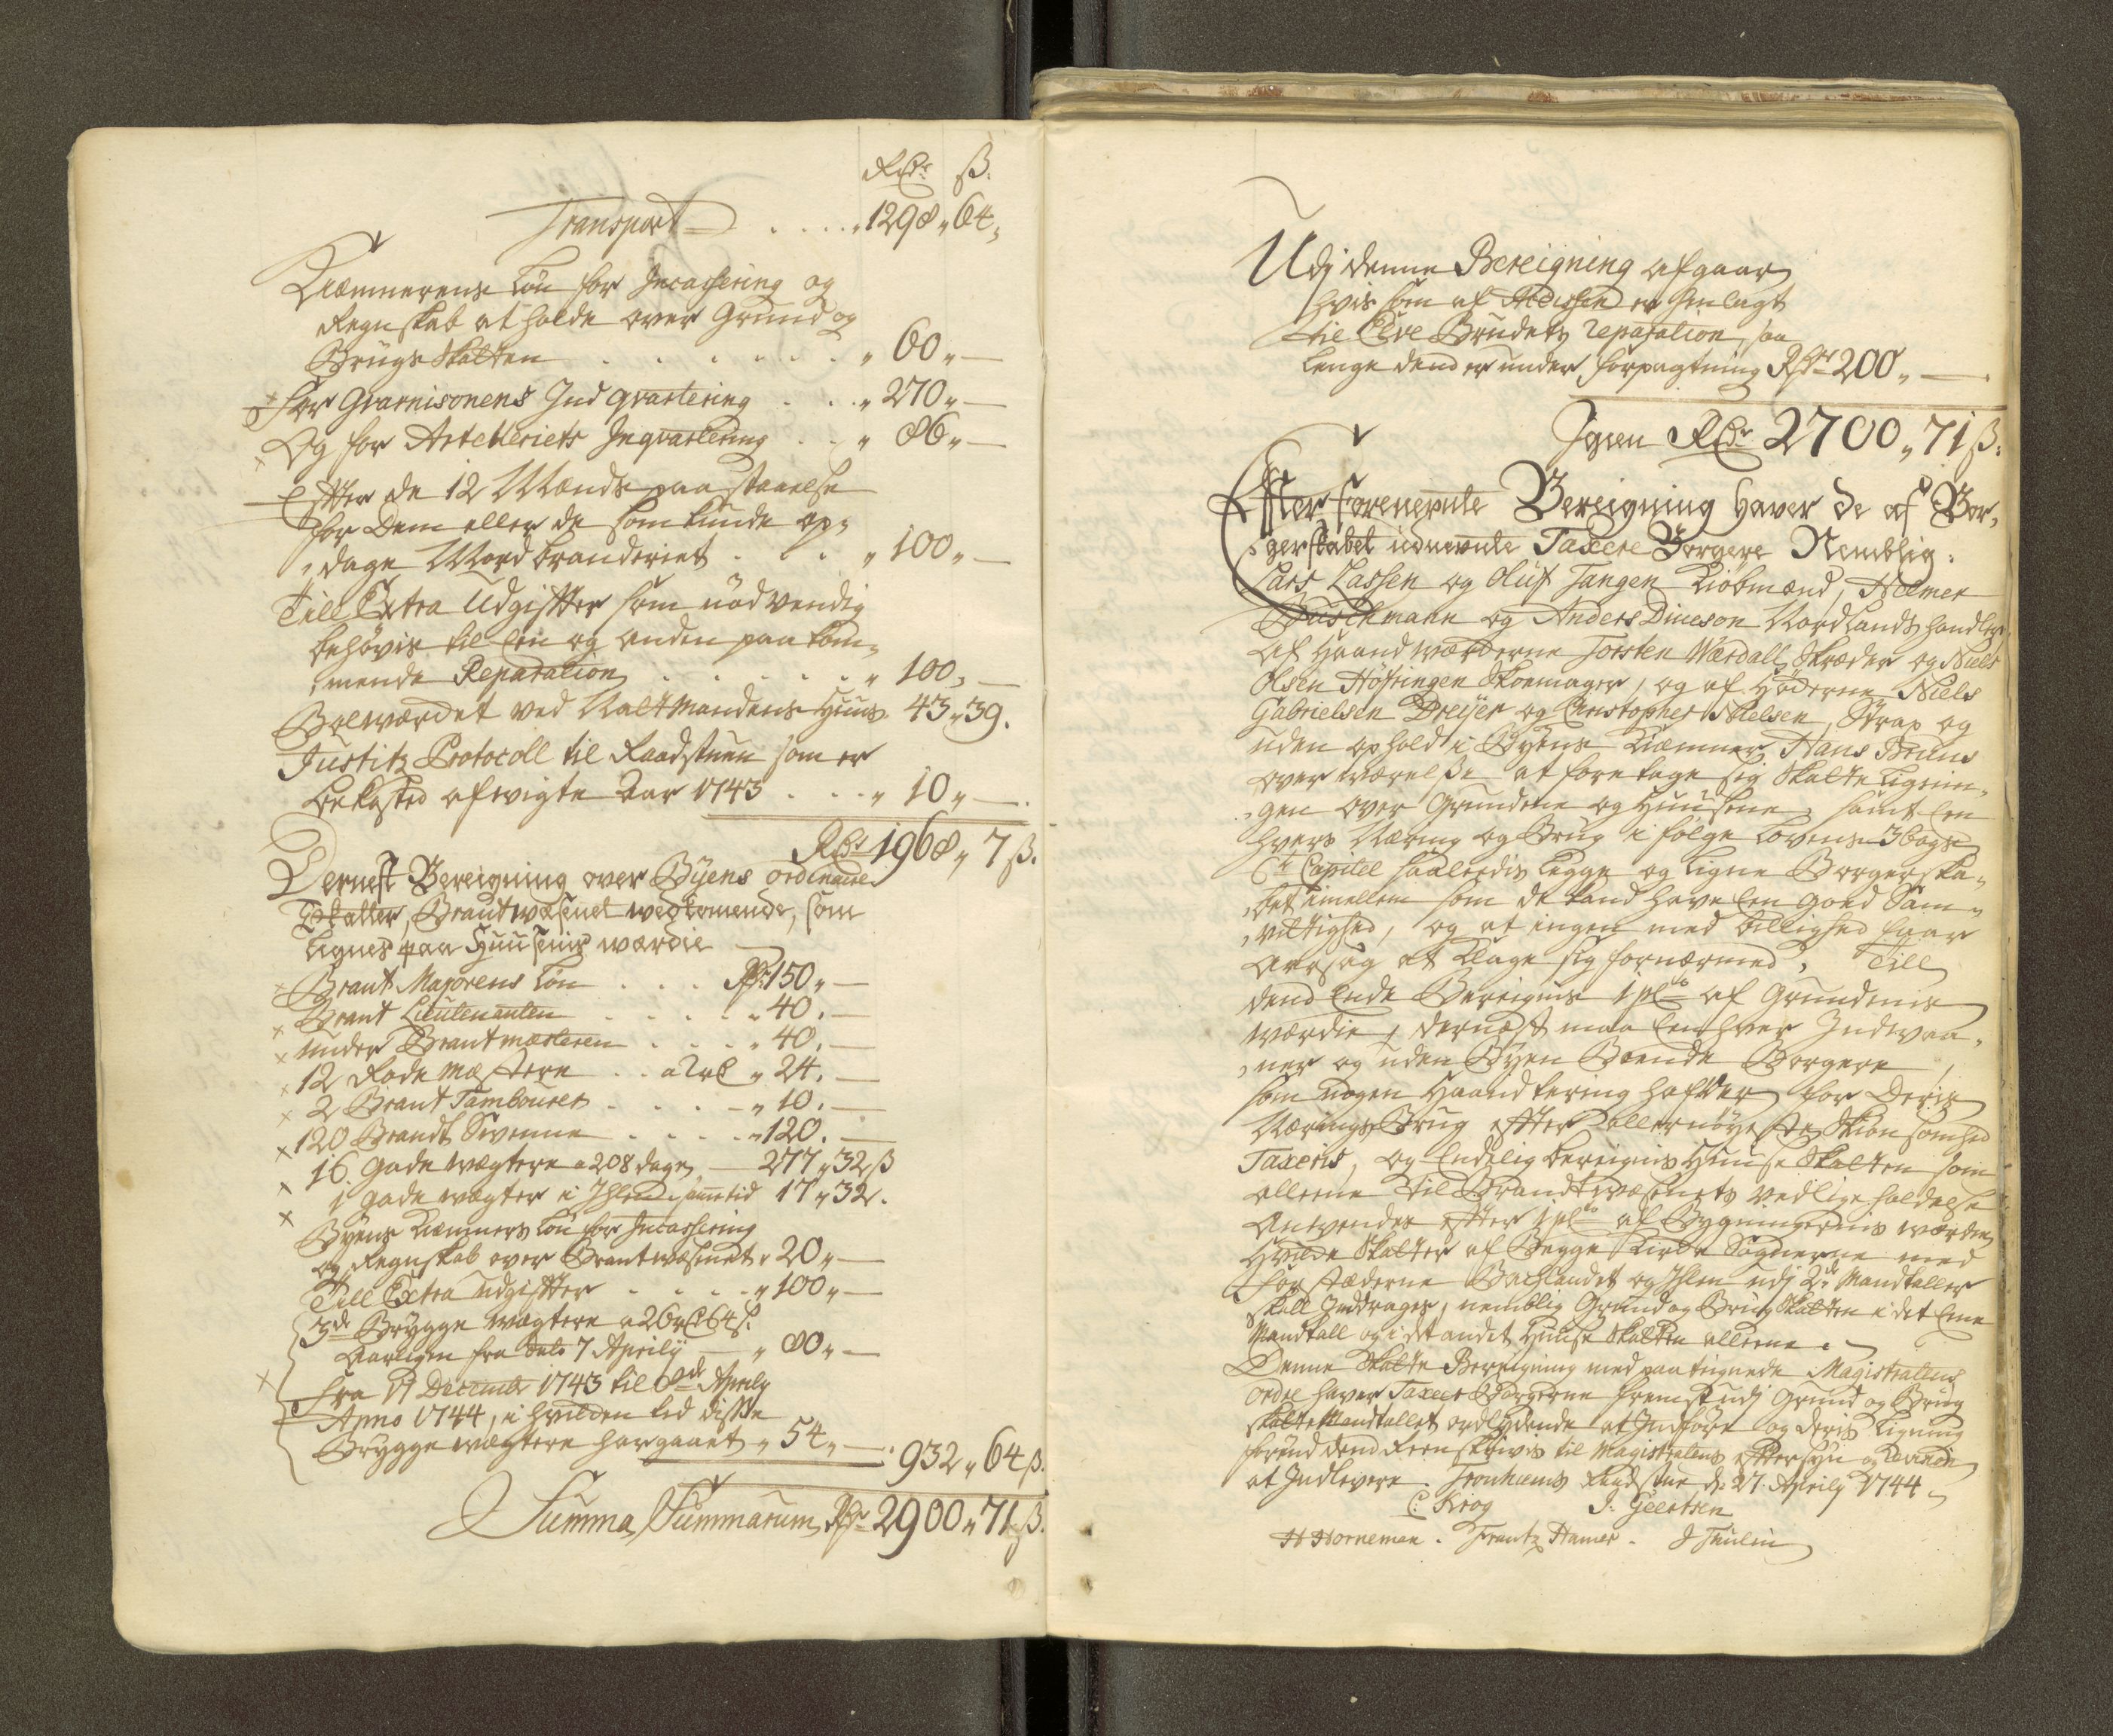 Rdr ß.
Transport . . . . „ 1298„ 64„
Kiæmnerens Løn for Incassering og
Regnskab at holde over Grund og
Brugs Skatten . . . . . . „ 60„ —
For Gvarnisonens Indqvartering . . . „ 270„ —
Og for Artelleriets Inqvartering . . „ 86„ —
Efter de 12 Mænds paastaaelse
for Dem eller de som kunde op„
„dage Mordbranderiet . . . „ 100„ —
Till Extra Udgifter som nødvendig
behøvis til een og anden paakom„
„mende Reparation . . . . . „ 100„ —
Bolværdet ved Natmandens Huus. 43„ 39.
Justitz Protocoll til Raadstuen som er
bekosted afvigte Aar 1743 . . . „ 10„ —.
Rdr 1968„ 7 ß.
Dernest Bereigning over Byens ordinaire
Skatter, Brantvæsenet vedkomende, som
lignes paa Huusenis værdie
Brant Majorens Løn . . . Rdr 150„ —
Brant Lieutenanten . . . . . „ 40. —
Under Brantmesteren . . . . „ 40. —
12 Rodemestere . . a 2 rd „ 24. —
2 Brant Tambourer . . . . — „ 10. —
120 Brandt Svenne . . . . . „ 120. —
16 Gade vægtere a 208 dage, — 277„ 32 ß
1 gade vægter i Ihlen samme tid 17„ 32.
Byens Kiæmners Løn for Incassering
og Regnskab over Brantvæsenet „ 20„ —
Till Extra udgifter . . . . . „ 100„ —
3de Brygge vægtere a 26 rd 64 ß.
Aarligen fra dato 7 Aprily — „ 80„ —
Fra 17 December 1743 til 8de Aprily
Anno 1744, i hvilden tid disse
Bryggevægtere har gaaet „ 54„ —. 932„ 64 ß.
Summa Summarum, Rdr 2900„ 71 ß.
Udj denne Bereigning afgaar
hvis som af Accissen er henlagt
til Elve Brudets reparation, saa
lenge dend er under forpagtning Rdr 200„ —.
Igien Rdr 2700„ 71 ß.
Efter forenevnte Bereigning haver de af Bor„
„gerskabet udnevnte Taxere Borgere Nemblig:
Lars Lassen og Oluf Tangen Kiøbmænd, Hilmer
Buschmann og Anders Dineson Nordlands handlere
af Haandværderne Torsten Wærdall, Skræder og Niels
Olsen Høstringen Skoemager, og af Høderne Niels
Gabrielsen Dreijer og Christopher Nielsen, Strax og
uden ophold i Byens Kiæmner Hans Bruns
overværelse at foretage sig Skatte Lignin„
„gen over Grundene og Huusene, samt een
hvers Næring og Brug i følge Lovens 3 bogs
6te Capitel saaledis legge og ligne Borgerska„
„bet imellem som de kand have een goed Sam„
„vittighed, og at ingen med billighed faar
Aarsag at Klage sig fornærmed. Till
dend Ende Bereignis 1 pCto af Grundenis
værdie, dernæst maa Eenhver Indvaa„
„ner og uden Byen Boende Borgere
som nogen Haandtering hafver for Deris
Nærings Brug efter allernøyeste Skiønsomhed
Taxeris, og Endelig bereignis Huuse Skatten som
alleene til Brandtvæsenets vedligeholdelse
Anvendes efter 1 pCto af Bygningernis værdie
Hvilde Skatter af Begge Kirke Sognerne med
Forstæderne Bachlandet og Ihlen udj 2de Mandtaller
skall Inddrages, nemblig Grund og Brug Skatten i det Eene
Mandtall og i det andet Huuse Skatten alleene.
Denne Skatte Bereigning med paateignede Magistratens
ordre haver Taxeer Borgerne fremst udj Grund og Brug
skatteMandtallet ordlydende at Indføre og deris Ligning
forend dend Reenskrives til Magistratens Eftersyn og Revision
at Indlevere. Tronhiems Raadstue d: 27. Aprily 1744
C: Krog J. Geertsen
H Horneman. Frantz Hamer. J Thulin